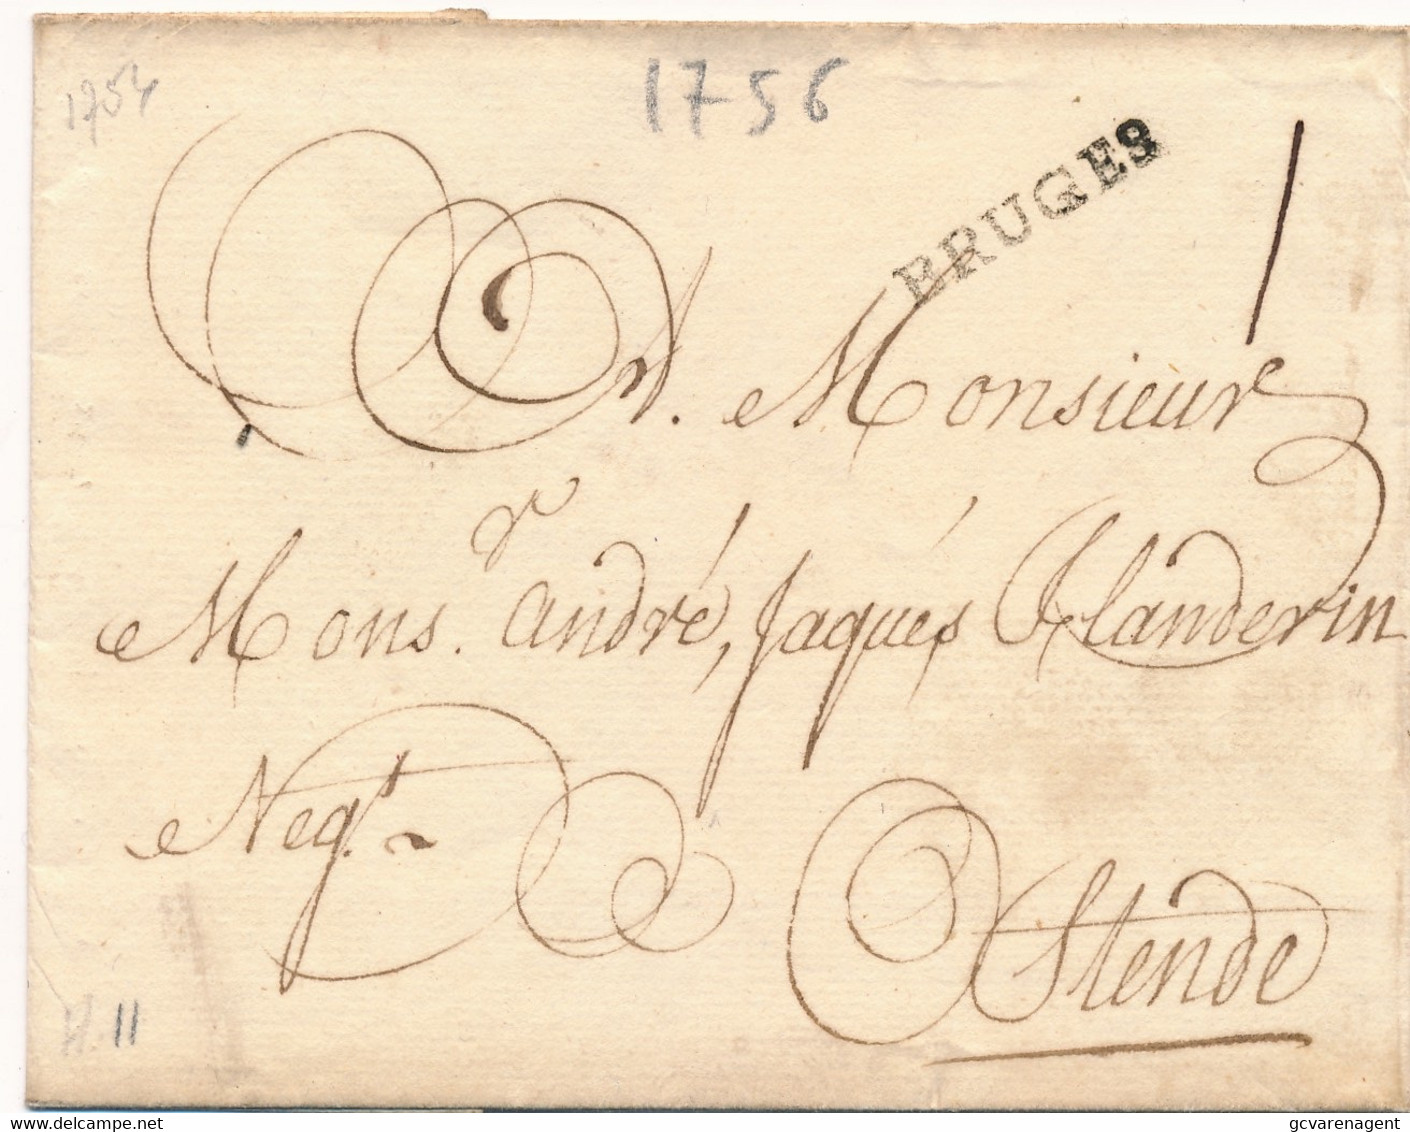 1754
1756
BRUGES
A. Monsieur
Monsr. andré, Jaqués Flanderin
Negt.
Ostende
H. 11
delcampe.net
gcvarenagent